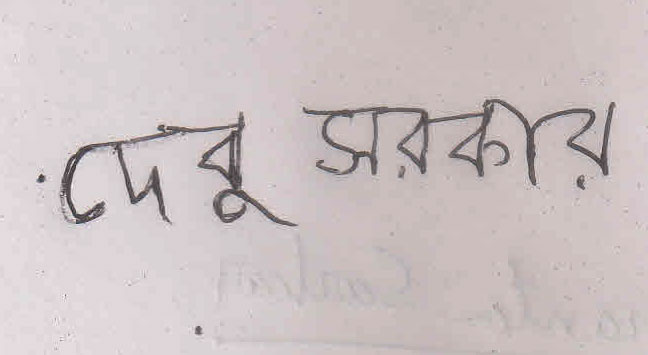 দেবু সরকার